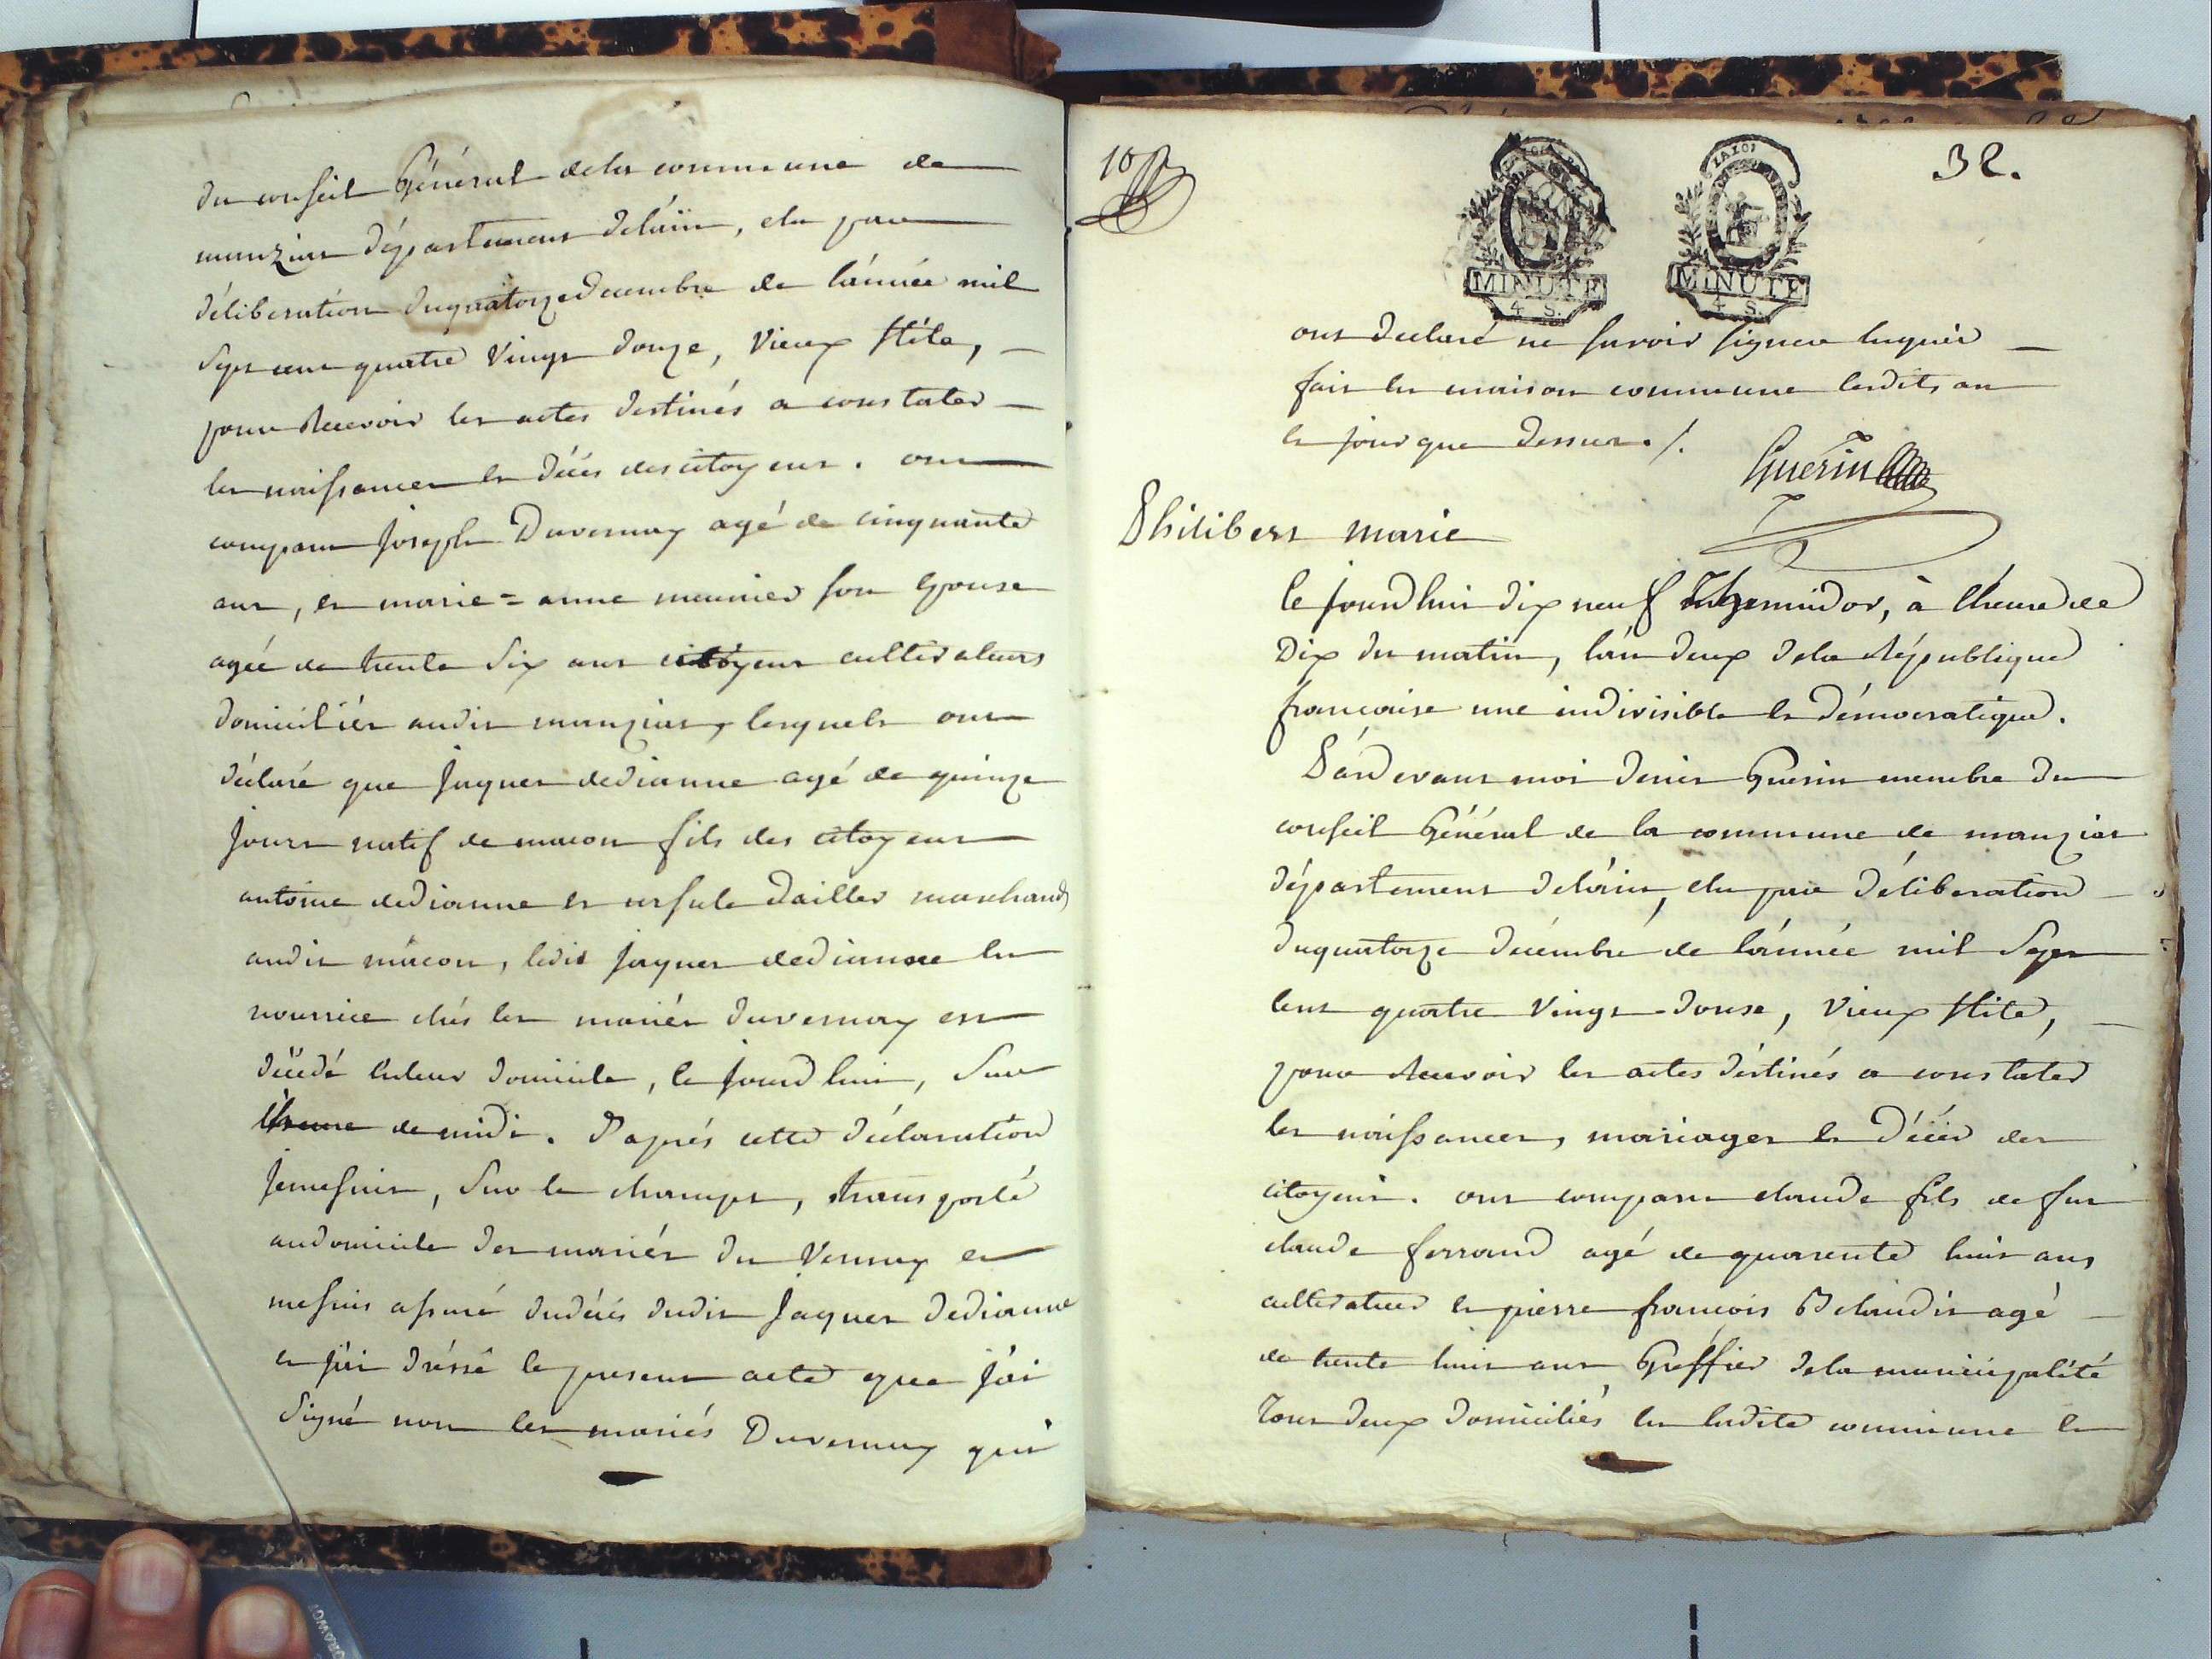 du conseil Général dela commune de
manziat département deláin, elu par
déliberation duquatorze decembre de lánnée mil
Sept cent quatre Vingt douze, Vieux Stile,
pour Recevoir les actes destinés a constater
les naissances et décés des citoyens. ont
comparu joseph Duvernay agé de cinquante
ans, et marie=anne meunier son epouse
agée de trente Six ans citoyens cultivateurs
domiciliés audit manziat, lesquels ont
déclaré que Jaques dedianne agé de quinze
jours natif de macon fils des citoyens
antoine dedianne et ursule dailler marchands
audit mâcon, ledit jaques dedianne en
nourrice chés les mariés duvernay est
décédé enleur domicile, cejourdhui, Sur
lheure de midi. D'aprés cette déclaration
jemesuis, Sur le champs, transporté
audomicile des mariés du Vernay et
mesuis assuré dudécés dudit Jaques Dedianne
et jái dréssé le present acte que jái
Signé non les mariés Duvernay qui
10
32.
MINUTE
4 S.
MINUTE
4 S.
ont declaré ne savoir signer enquis
fait en maison commune lesdits an
et jour que dessus./.
Guerin
Philibert marie
Cejourdhui dix neuf Thermidor, à lheure de
Dix du matin, lán deux dela République
francaise une indivisible et démocratique.
Pardevant moi denis Guerin membre du
conseil Général de la commune de manziat
département deláin, elu par déliberation
duquatorze décembre de lánnée mil Sept
cent quatre Vingt-douse, Vieux Stile,
pour Recevoir les actes déstinés a constater
les naissances, mariages et Décés des
citoyens. ont comparu claude fils de fut
claude ferrand agé de quarente huit ans
cultivateur et pierre francois Belaudit agé
de trente huit ans Gréffier dela municipalité
Tous deux domiciliés en ladite commune et